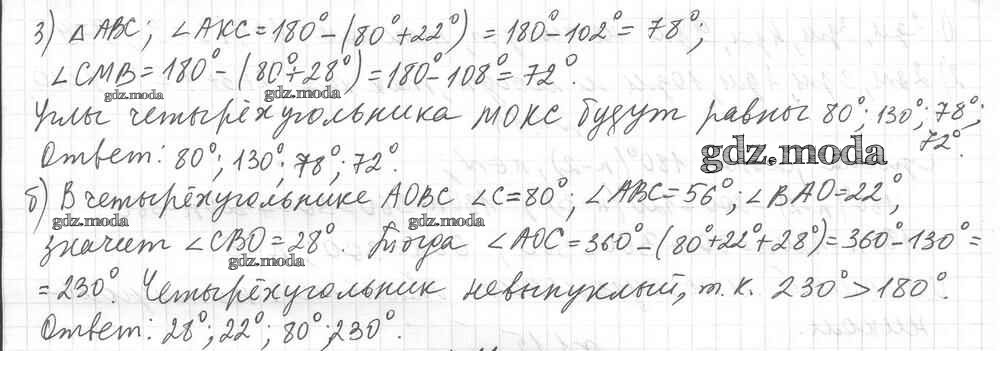 3) △ABC; ∠AKC=180°-(80°+22°)=180°-102°=78°;
∠CMB=180°-(80°+28°)=180°-108°=72°.
gdz.moda gdz.moda
Углы четырёхугольника МОКС будут равны 80°; 130°; 78°;
72°.
gdz.moda
Ответ: 80°; 130°; 78°; 72°.
б) В четырёхугольнике AOBC ∠C=80°; ∠ABC=56°; ∠BAO=22°,
gdz.moda gdz.moda
значит ∠CBO=28°. Тогда ∠AOC=360°-(80°+22°+28°)=360°-130°=
gdz.moda
=230° Четырёхугольник невыпуклый, т.к. 230°>180°.
Ответ: 28°; 22°; 80°; 230°.